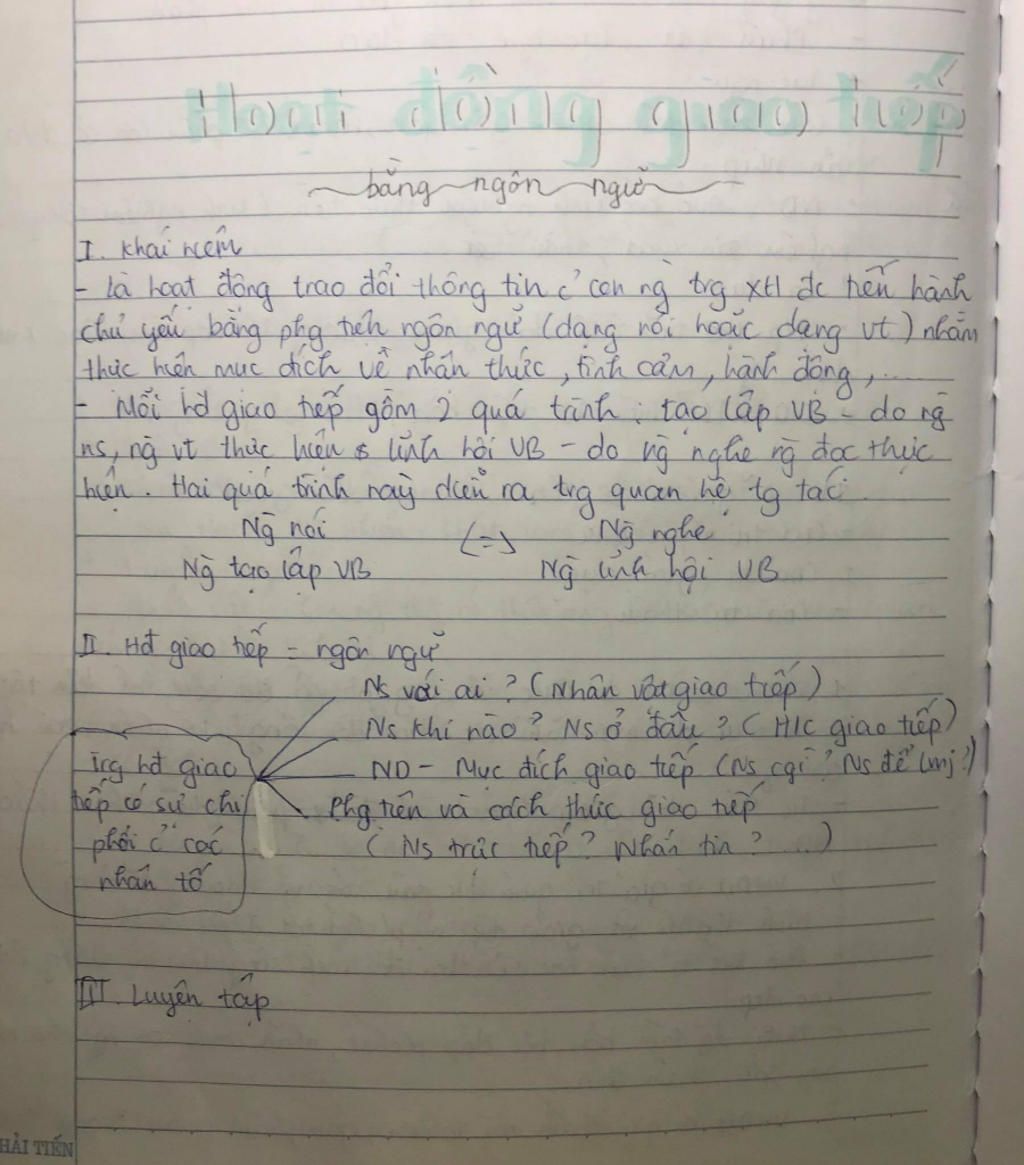 Hoạt động giao tiếp
bằng ngôn ngữ
I. Khái niệm
- Là hoạt động trao đổi thông tin c̉ con ng̀ trg XH đc tiến hành
chủ yếu bằng phg tiện ngôn ngữ (dạng nói hoặc dạng vt) nhằm
thực hiện mục đích về nhận thức, tình cảm, hành động,.....
- Mỗi hđ giao tiếp gồm 2 quá trình : tạo lập VB - do ng̀
ns, ng̀ vt thực hiện & lĩnh hội VB - do ng̀ nghe ng̀ đọc thực
hiện. Hai quá trình này diễn ra trg quan hệ tg tác.
Ng̀ nói (=) Ng̀ nghe
Ng̀ tạo lập VB Ng̀ lĩnh hội VB
II. Hđ giao tiếp = ngôn ngữ
Ns với ai ? (Nhân vật giao tiếp)
Ns khi nào ? Ns ở đâu ? ( H/C giao tiếp)
Trg hđ giao ND - Mục đích giao tiếp (Ns cgì ? Ns để lmj ?)
tiếp có sự chi Phg tiện và cách thức giao tiếp
phối c̉ các ( Ns trực tiếp ? Nhắn tin ? ...)
nhân tố
III. Luyện tập
HẢI TIẾN